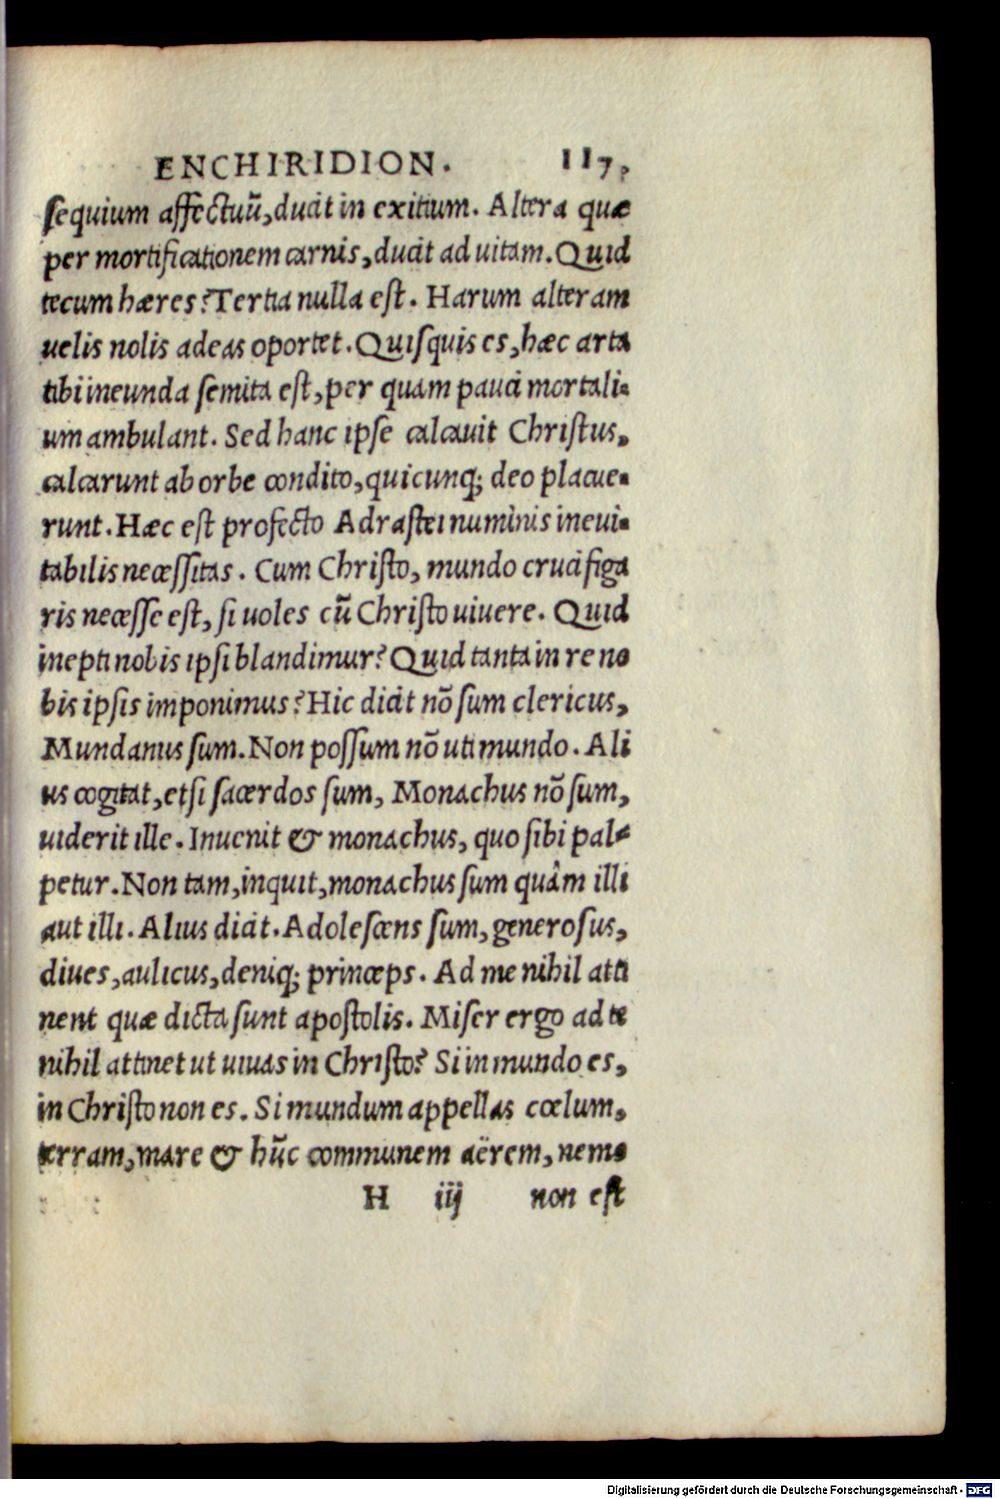 ENCHIRIDION. 117.
sequium affectuũ, ducit in exitium. Altera quæ
per mortificationem carnis, ducit ad uitam. Quid
tecum hæres? Tertia nulla est. Harum alteram
uelis nolis adeas oportet. Quisquis es, hæc arta
tibi ineunda semita est, per quam pauci mortali-
um ambulant. Sed hanc ipse calcauit Christus,
calcarunt ab orbe condito, quicunq; deo placue-
runt. Hæc est profecto Adrastei numinis ineui-
tabilis necessitas. Cum Christo, mundo crucifiga
ris necesse est, si uoles cũ Christo uiuere. Quid
inepti nobis ipsi blandimur? Quid tanta in re no
bis ipsis imponimus? Hic dicit nõ sum clericus,
Mundanus sum. Non possum nõ uti mundo. Ali
us cogitat, etsi sacerdos sum, Monachus nõ sum,
uiderit ille. Inuenit & monachus, quo sibi pal-
petur. Non tam, inquit, monachus sum quâm illi
aut illi. Alius dicit. Adolescens sum, generosus,
diues, aulicus, deniq; princeps. Ad me nihil atti
nent quæ dicta sunt apostolis. Miser ergo ad te
nihil attinet ut uiuas in Christo? Si in mundo es,
in Christo non es. Si mundum appellas cœlum,
terram, mare & hũc communem aërem, nemo
H iij non est
Digitalisierung gefördert durch die Deutsche Forschungsgemeinschaft - DFG